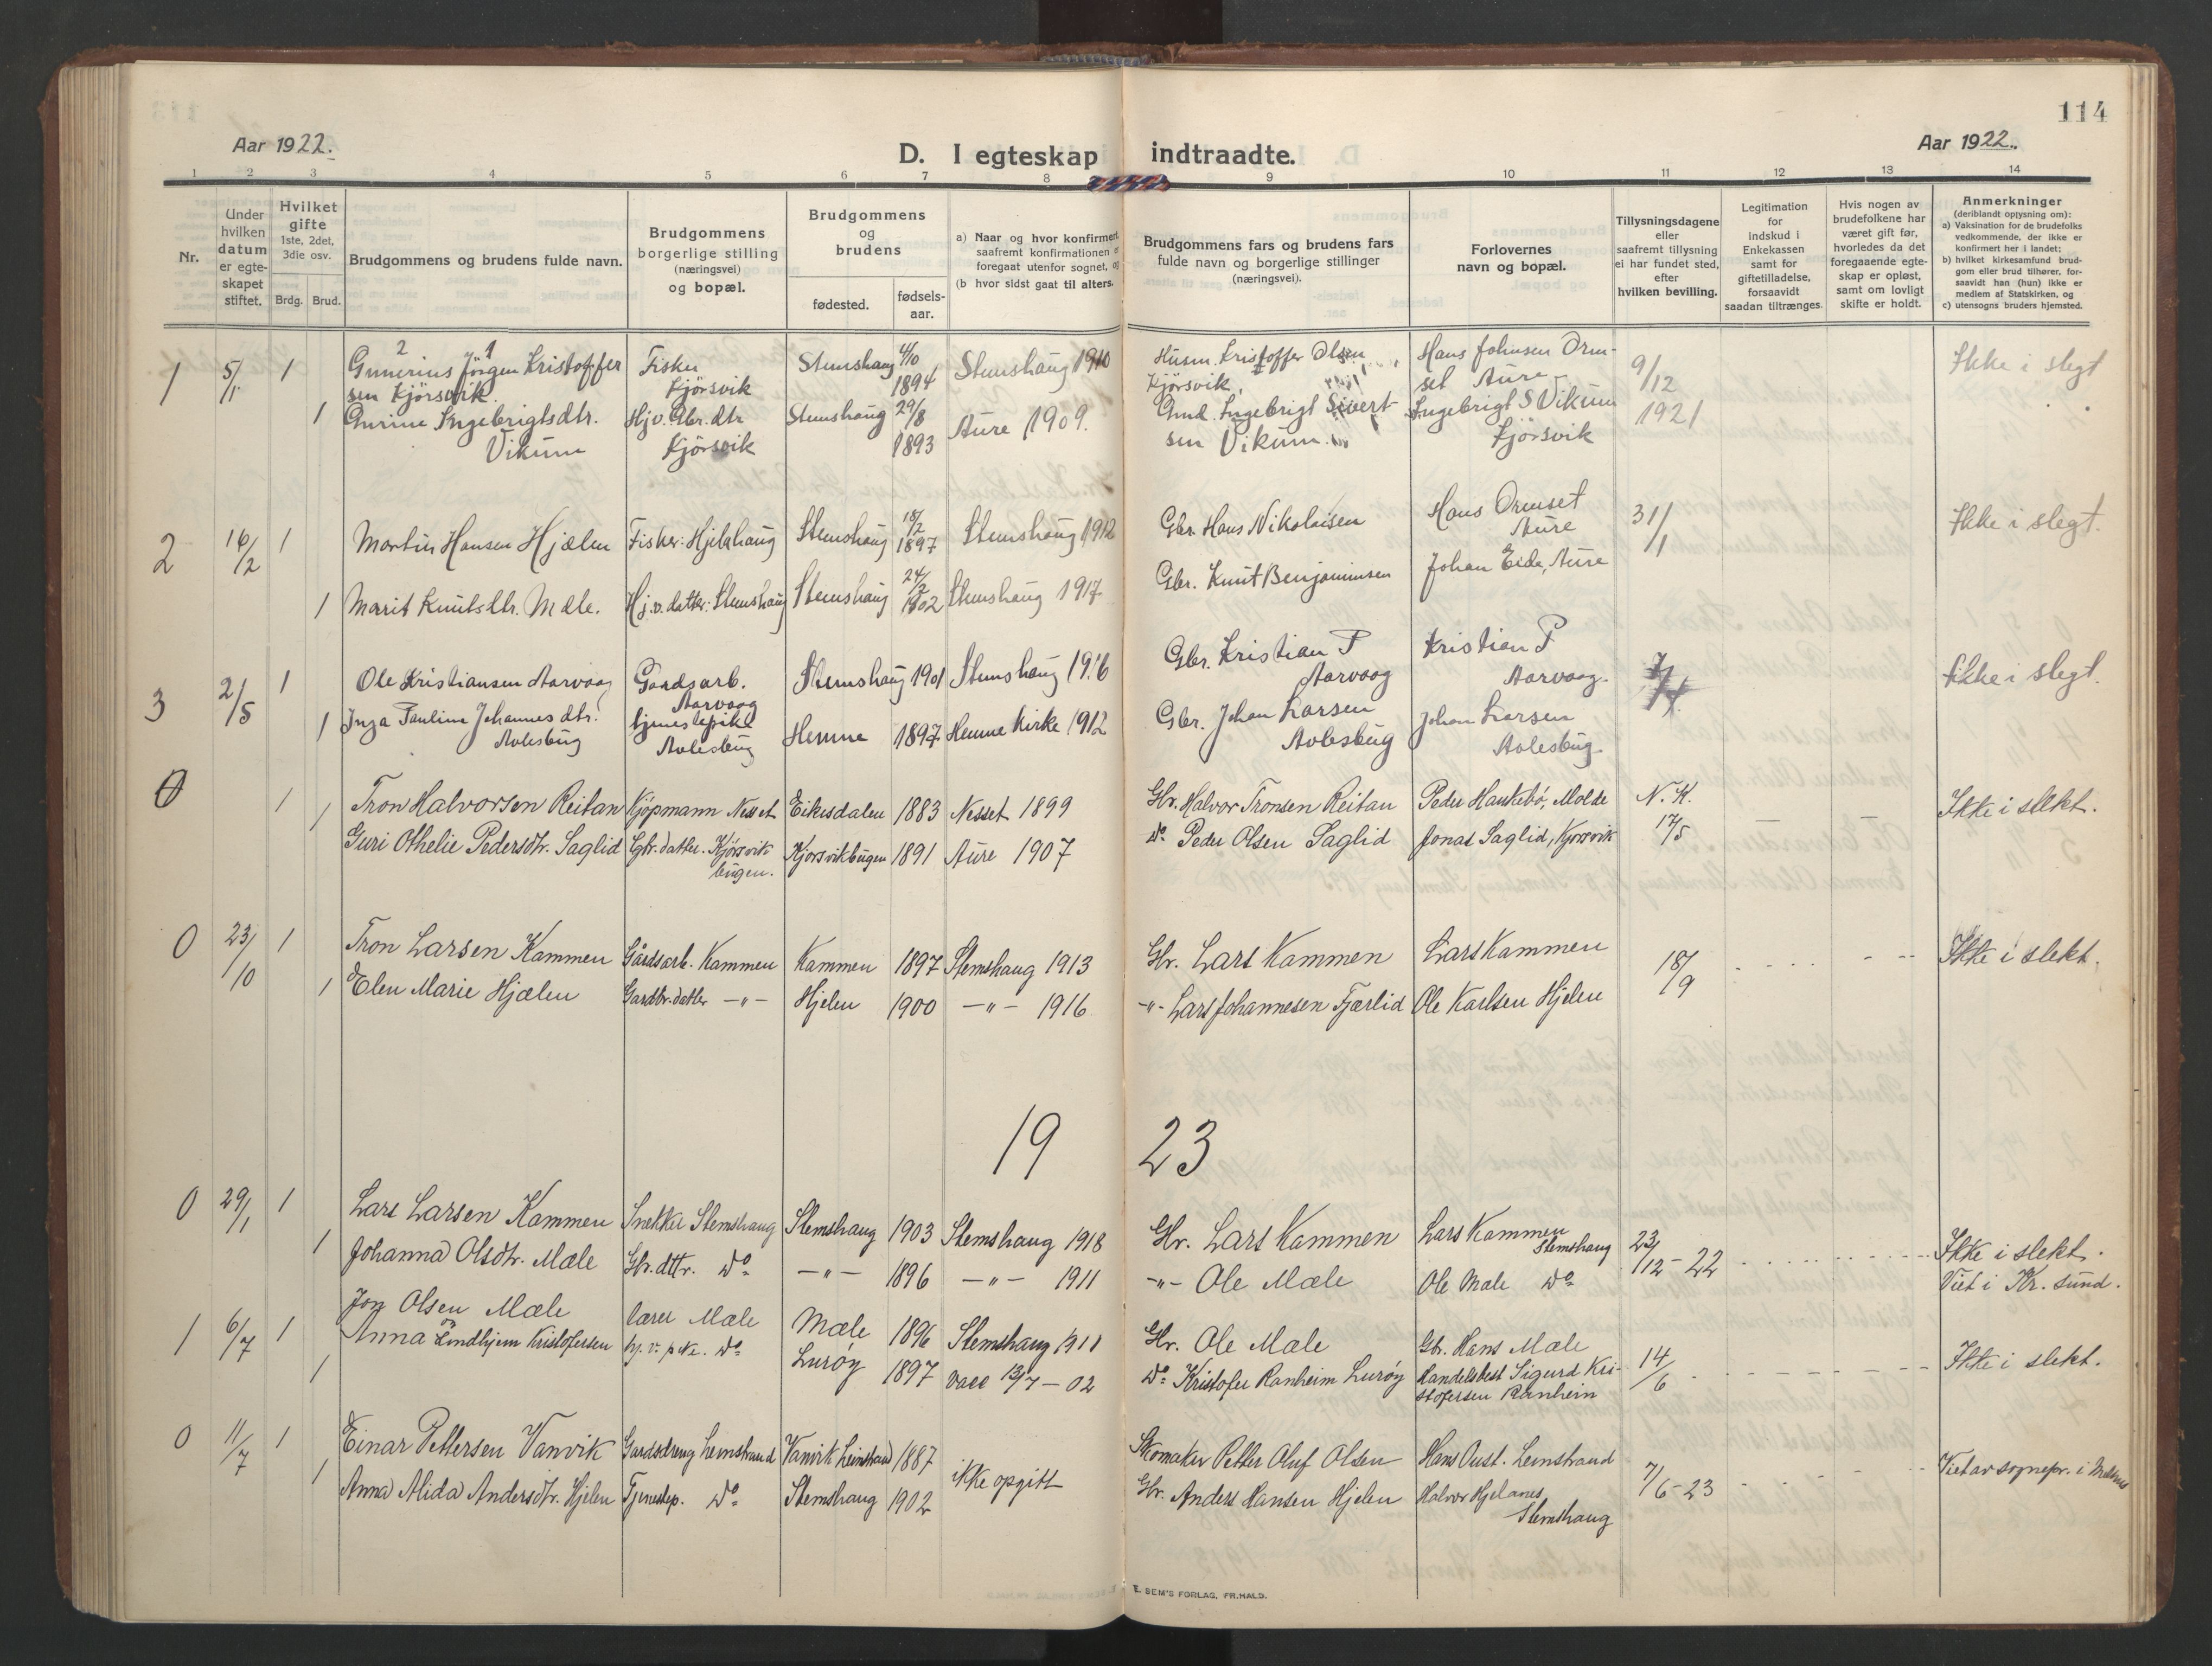 114
Aar 1922.
D. I egteskap indtraadte.
Aar 1922.
1 2 3 4 5 6 7 8 9 10 11 12 13 14
Nr.
Under
hvilken
datum
er egte-
skapet
stiftet.
Hvilket
gifte
1ste, 2det,
3die osv.
Brdg. Brud.
Brudgommens og brudens fulde navn.
Brudgommens
borgerlige stilling
(næringsvei)
og bopæl.
Brudgommens
og
brudens
fødested.
fødsels-
aar.
a) Naar og hvor konfirmert
saafremt konfirmationen
foregaat utenfor sognet,
(b hvor sidst gaat til alters.
Brudgommens fars og brudens fars
fulde navn og borgerlige stillinger
(næringsvei).
Forlovernes
navn og bopæl.
Tillysningsdagene
eller
saafremt tillysning
ei har fundet sted,
efter
hvilken bevilling.
Legitimation
for
indskud i
Enkekassen
samt for
giftetilladelse,
forsaavidt
saadan tiltrænges.
Hvis nogen av
brudefolkene har
været gift før,
hvorledes da det
foregaaende egte-
skap er opløst,
samt om lovligt
skifte er holdt.
Anmerkninger
(deriblandt oplysning om):
a) Vaksination for de brudefolks
vedkommende, der ikke er
konfirmert her i landet;
b) hvilket kirkesamfund brud-
gom eller brud tilhører, for-
saavidt han (hun) ikke er
medlem af Statskirken, og
c) utensogns bruders hjemsted.
1 5/1 1 2 1
Gunerius Jörgen Kristoffer
sen Kjörsvik.
Fisker
Kjörsvik
Stemshaug 4/10
1894
Stemshaug 1910
Husm. Kristoffer Olsen
Kjörsvik.
Hans Johnsen Orm-
set Aure
9/12
1921
Ikke i slegt
1 Gurine Ingebrigtsdtr.
Vikum
Hj.v. Gbr. dtr
Kjörsvik
Stemshaug 29/8
1893
Aure 1909.
Gmd. Ingebrigt Sivert-
sen Vikum.
Ingebrigt S Vikum
Kjörsvik
2 16/2 1 Martin Hansen Hjælen
Fisker: Hjelahaug
Stemshaug 18/2
1897
Stemshaug 1912
Gbr. Hans Nikolaisen
Hans Ormset
Aure
31/1
Ikke i slegt.
1 Marit Knutsdtr. Mæle.
Hj.v. datter: Stemshaug
Stemshaug 24/2
1902
Stemshaug 1917
Gbr. Knut Benjaminsen
Johan Eide, Aure
3 2/5 1 Ole Kristiansen Aarvaag
Gaardsarb.
Aarvaag
Stemshaug 1901
Stemshaug 1916
Gbr. Kristian P
Aarvaag
Kristian P
Aarvaag.
Ikke i slegt.
1 Inga Pauline Johannesdtr.
Aolesbug
tjenestepike
Aolesbug
Hemne 1897
Hemne Kirke 1912
Gbr. Johan Larsen
Aolesbug
Johan Larsen
Aolesbug.
0 1 Tron Halvorsen Reitan
Kjöpmann Nesset
Eikisdalen 1883
Nesset 1899
Gbr. Halvor Tronsen Reitan
Peder Haukebö, Molde
N. K.
17/5
— —
Ikke i slekt.
1 Guri Othelie Pedersdtr. Saglid
Gbr. datter. Kjörsvik
bugen.
Kjorsvikbugen 1891
Aure 1907
Do Peder Olsen Saglid
Jonas Saglid, Kjorsvik
0 23/10 1 Tron Larsen Kammen
Gårdsarb. Kammen
Kammen 1897
Stemshaug 1913
Gbr. Lars Kammen
Lars Kammen
18/9
Ikke i slekt.
1 Elen Marie Hjælen
Gardbr. datter —"—
Hjelen 1900
—"— 1916
-"- Lars Johannesen Fjærlid
Ole Karlsen Hjelen
19 23
0 29/1 1 Lars Larsen Kammen
Snekker Stemshaug
Stemshaug 1903
Stemshaug 1918
Gbr. Lars Kammen
Lars Kammen
Stemshaug
23/12 - 22
Ikke i slekt.
Viet i Kr. sund.
1 Johanna Olsdtr. Mæle
Gbr. dttr. Do
—"— 1896
—"— 1911
-"- Ole Mæle
Ole Mæle Do
1 6/7 1 Jon Olsen Mæle
lærer Mæle
Mæle 1896
Stemshaug 1911
Gbr. Ole Mæle
Gb. Hans Mæle
14/6
Ikke i slekt.
1 Anna Lindhjem Kristofersen
hj. v. pike. Do
Luröy 1897
vacc 13/7 - 02
Do Kristofer Ranheim Luröy
Handelsbest Sigurd Kri-
stofersen Ranheim
0 11/7 1 Einar Pettersen Vanvik
Gardsdreng Leinstrand
Vanvik Leinstrand 1887
ikke opgitt
Skomaker Petter Oluf Olsen
Hans Oust. Leinstrand
7/6 - 23
Viet av sognepr. i Melhus
1 Anna Alida Andersdtr. Hjelen
Tjenestep. Do
Stemshaug 1902
Gbr. Anders Hansen Hjelen
Halvor Hjelanes
Stemshaug
E. SEM'S FORLAG, FR.HALD.